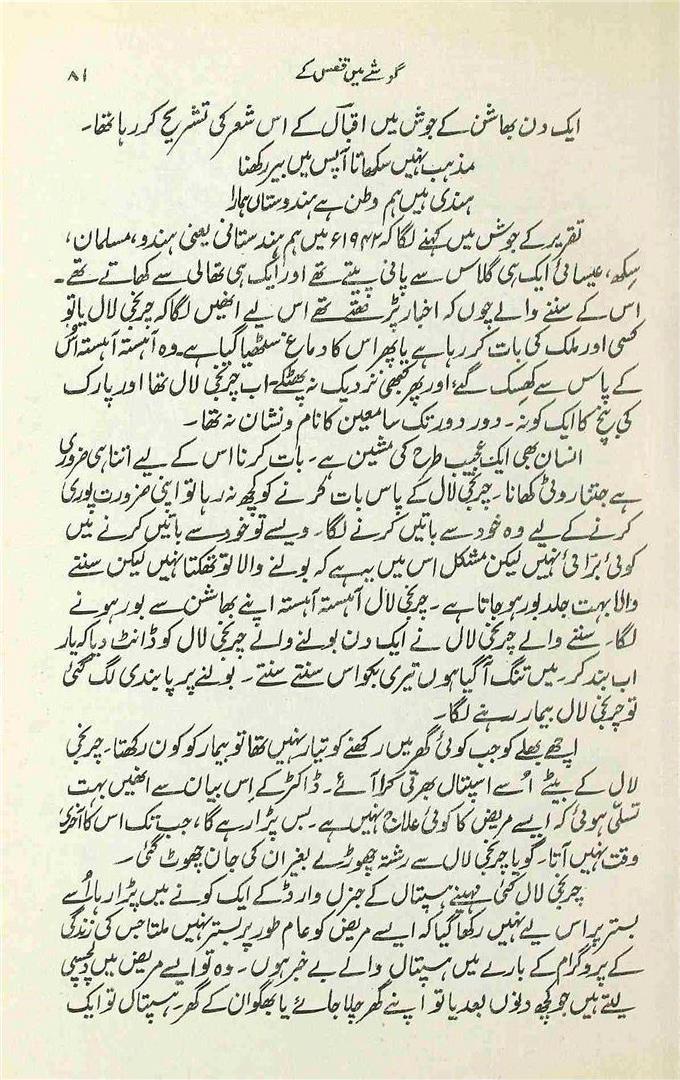 گوشے میں قفس کے ۸۱
ایک دن بھاشن کے جوش میں اقبال کے اس شعر کی تشریح کر رہا تھا۔
مذہب نہیں سکھاتا آپس میں بیر رکھنا
ہندی ہیں ہم وطن ہے ہندوستاں ہمارا
تقریر کے جوش میں کہنے لگا کہ ۱۹۴۲ء میں ہم ہندستانی یعنی ہندو، مسلمان،
سکھ، عیسائی ایک ہی گلاس سے پانی پیتے تھے اور ایک ہی تھالی سے کھاتے تھے۔
اس کے سننے والے چوں کہ اخبار پڑھتے تھے اس لیے انھیں لگا کہ چرنجی لال یا تو
کسی اور ملک کی بات کر رہا ہے یا پھر اس کا دماغ سٹھیا گیا ہے۔ وہ آہستہ آہستہ اس
کے پاس سے کھسک گئے، اور پھر کبھی نزدیک نہ پھٹکے۔ اب چرنجی لال تھا اور پارک
کی بنچ کا ایک کونہ۔ دور دور تک سامعین کا نام و نشان نہ تھا۔
انسان بھی ایک عجیب طرح کی مشین ہے۔ بات کرنا اس کے لیے اتنا ہی ضروری
ہے جتنا روٹی کھانا۔ چرنجی لال کے پاس بات کرنے کو کچھ نہ رہا تو اپنی ضرورت پوری
کرنے کے لیے وہ خود سے باتیں کرنے لگا۔ ویسے تو خود سے باتیں کرنے میں
کوئی برائی نہیں لیکن مشکل اس میں یہ ہے کہ بولنے والا تو تھکتا نہیں لیکن سننے
والا بہت جلد بور ہو جاتا ہے۔ چرنجی لال آہستہ آہستہ اپنے بھاشن سے بور ہونے
لگا۔ سننے والے چرنجی لال نے ایک دن بولنے والے چرنجی لال کو ڈانٹ دیا کہ یار
اب بند کر۔ میں تنگ آگیا ہوں تیری بکواس سنتے سنتے۔ بولنے پر پابندی لگ گئی
تو چرنجی لال بیمار رہنے لگا۔
اچھے بھلے کو جب کوئی گھر میں رکھنے کو تیار نہیں تھا تو بیمار کو کون رکھتا۔ چرنجی
لال کے بیٹے اُسے اسپتال بھرتی کرا آئے۔ ڈاکٹر کے اِس بیان سے انھیں بہت
تسلی ہوئی کہ ایسے مریض کا کوئی علاج نہیں ہے۔ بس پڑا رہے گا، جب تک اس کا آخری
وقت نہیں آتا۔ گویا چرنجی لال سے رشتہ چھوڑے بغیر ان کی جان چھوٹ گئی۔
چرنجی لال کئی مہینے ہسپتال کے جنرل وارڈ کے ایک کونے میں پڑا رہا۔ اُسے
بستر پر اس لیے نہیں رکھا گیا کہ ایسے مریض کو عام طور پر بستر نہیں ملتا جس کی زندگی
کے پروگرام کے بارے میں ہسپتال والے بے خبر ہوں۔ وہ تو ایسے مریض میں دلچسپی
لیتے ہیں جو کچھ دنوں بعد یا تو اپنے گھر چلا جائے یا بھگوان کے گھر۔ ہسپتال تو ایک